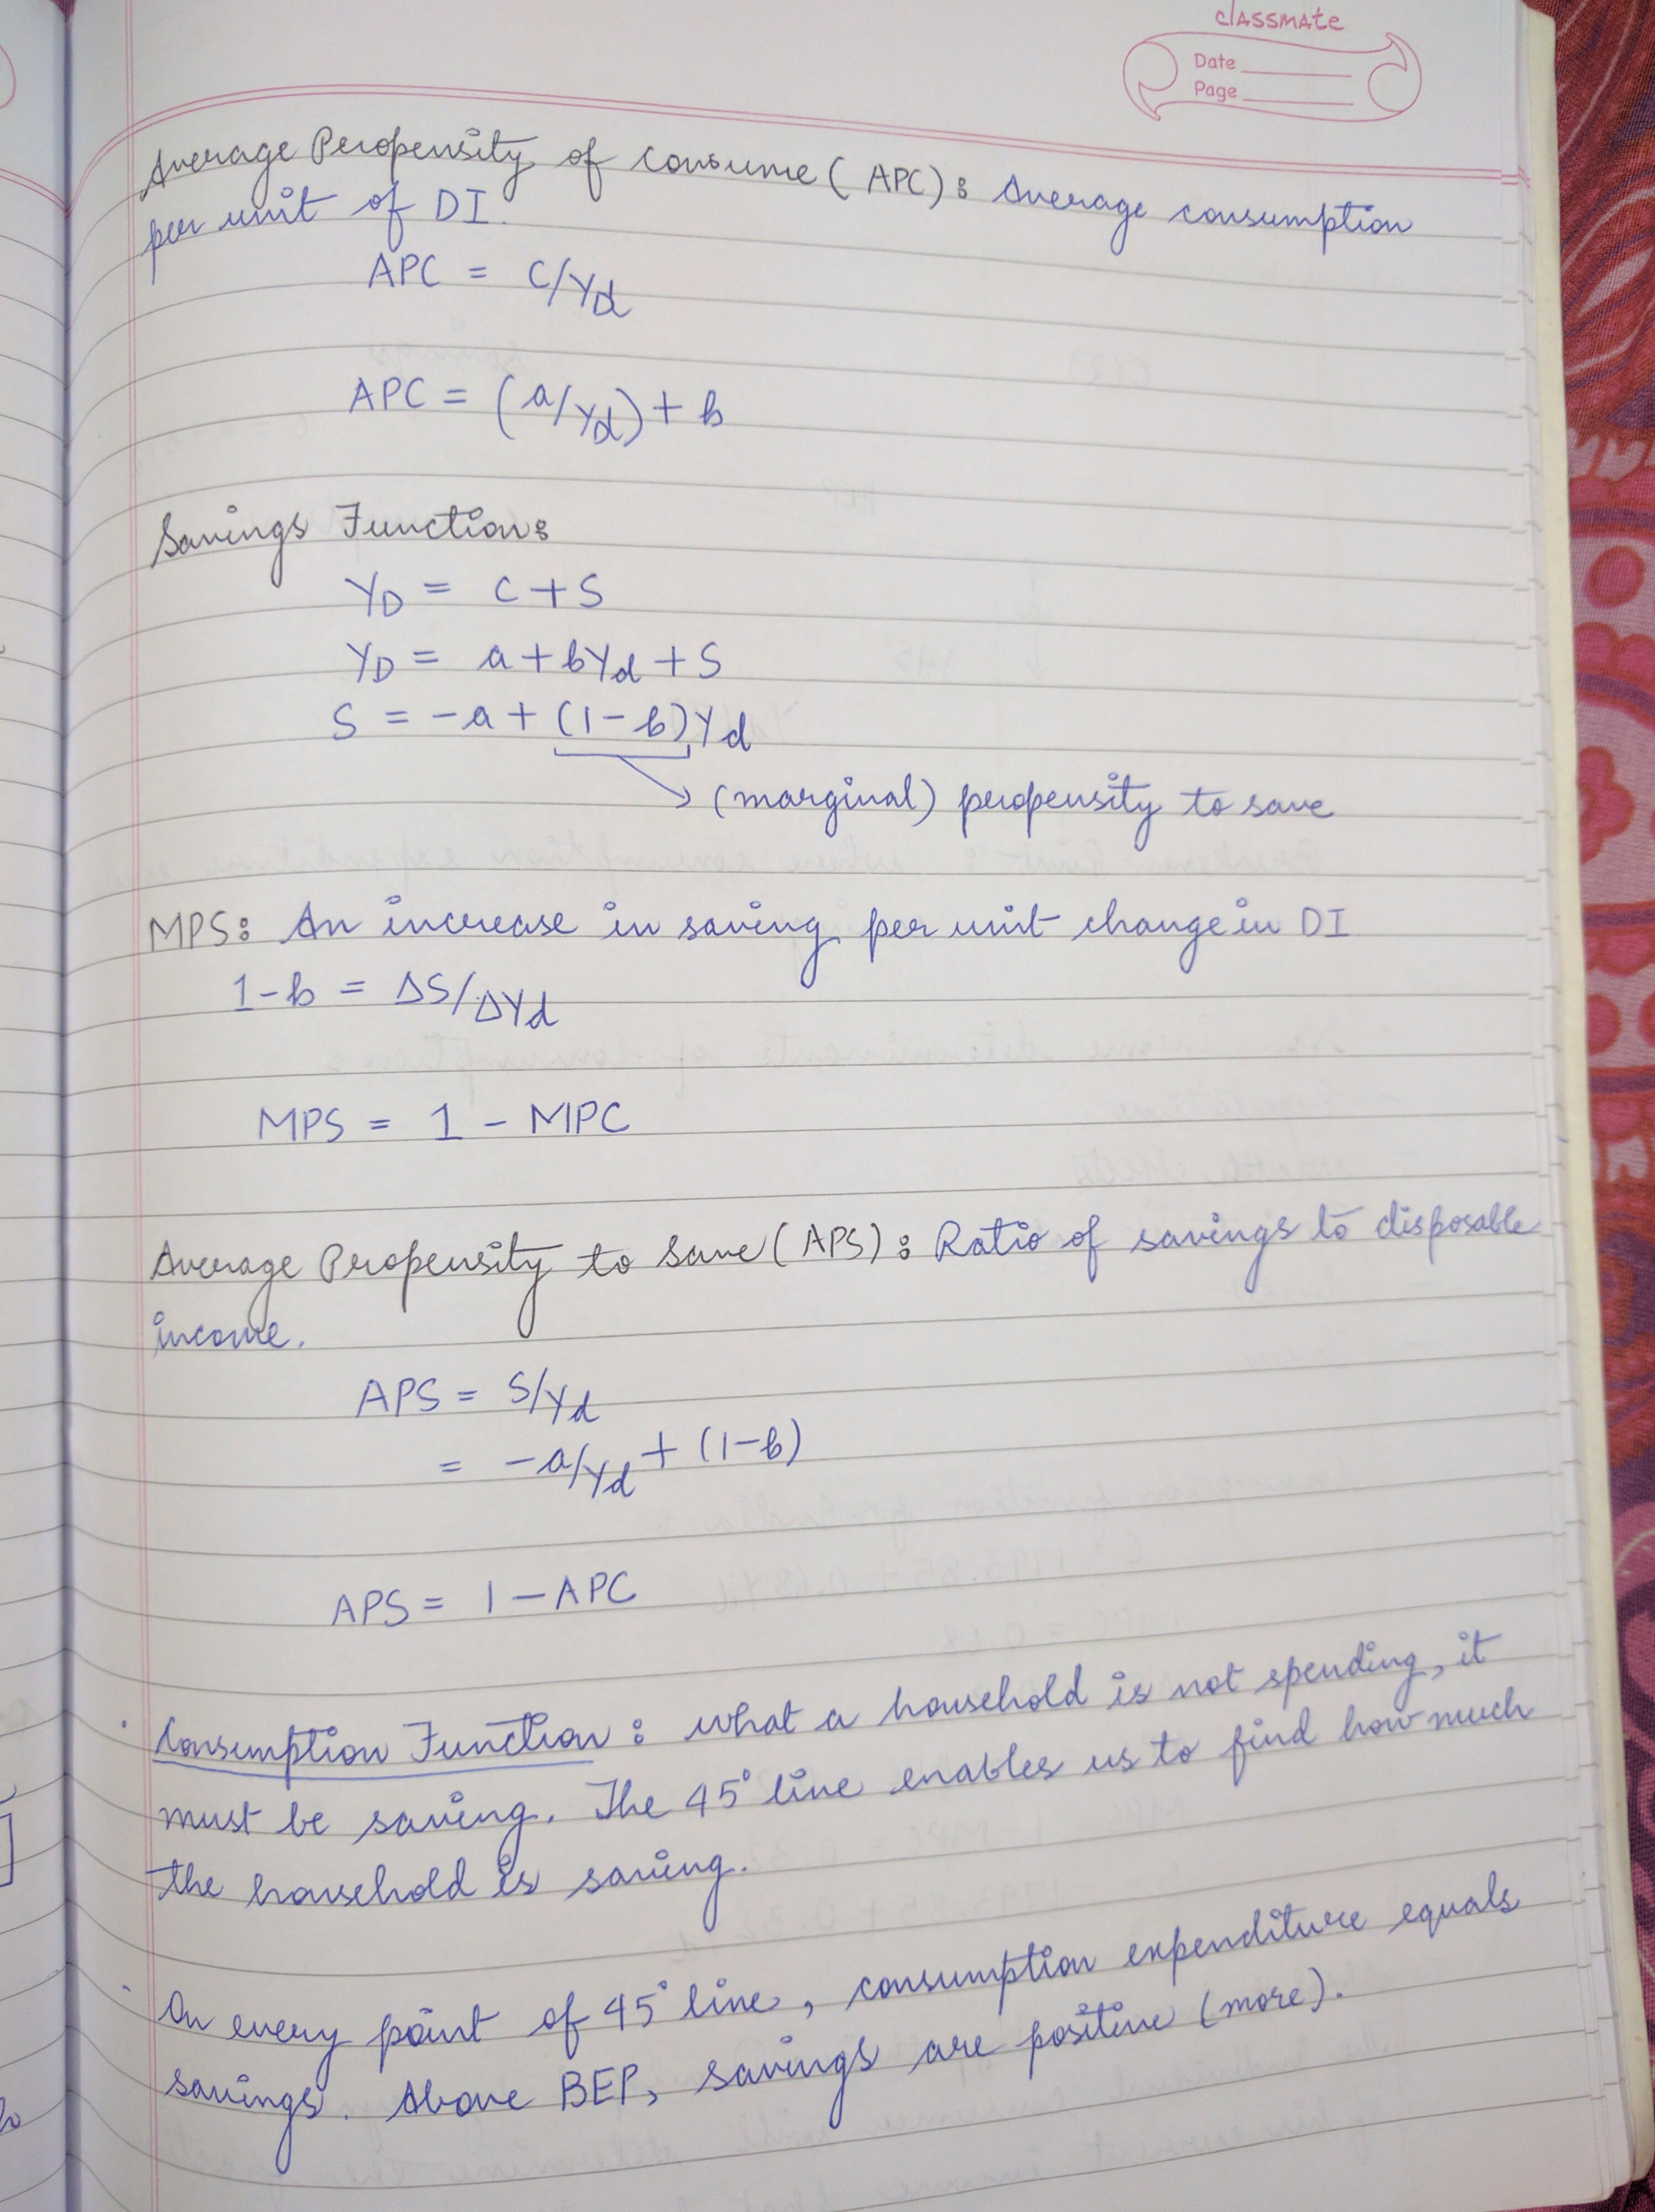 classmate
Date
Page
Average Propensity of consume (APC): Average consumption
per unit of DI.
APC = C/Yd
APC = (a/Yd) + b
Savings Function:
YD = C + S
YD = a + bYd + S
S = -a + (1-b)Yd
(marginal) propensity to save
MPS: An increase in saving per unit change in DI
1-b = ΔS/ΔYd
MPS = 1 - MPC
Average Propensity to save (APS): Ratio of savings to disposable
income.
APS = S/Yd
= -a/Yd + (1-b)
APS = 1 - APC
· Consumption Function: what a household is not spending, it
must be saving. The 45° line enables us to find how much
the household is saving.
· On every point of 45° line, consumption expenditure equals
savings. Above BEP, savings are positive (more).